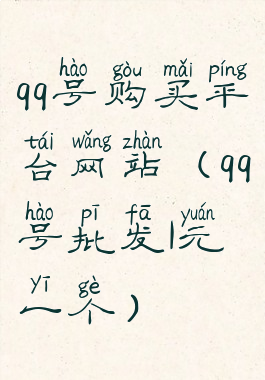 hào gòu mǎi píng
qq号购买平
tái wǎng zhàn
台网站（qq
hào pī fā yuán
号批发1元
yī gè
一个）